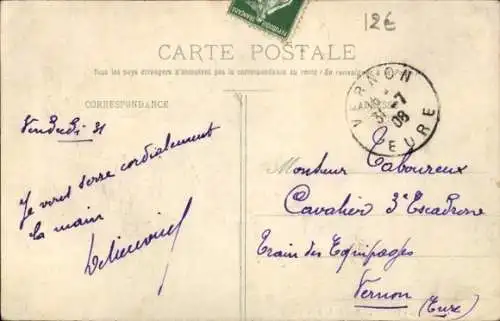 12€
CARTE POSTALE
Tous les pays étrangers n'acceptent pas la correspondance au recto
CORRESPONDANCE
VERNON
31-7
08
EURE
Vendredi 31
Je vous serre cordialement
la main
Monsieur Taboureux
Cavalier 3e Escadron
Train des Equipages
Vernon
(Eure)